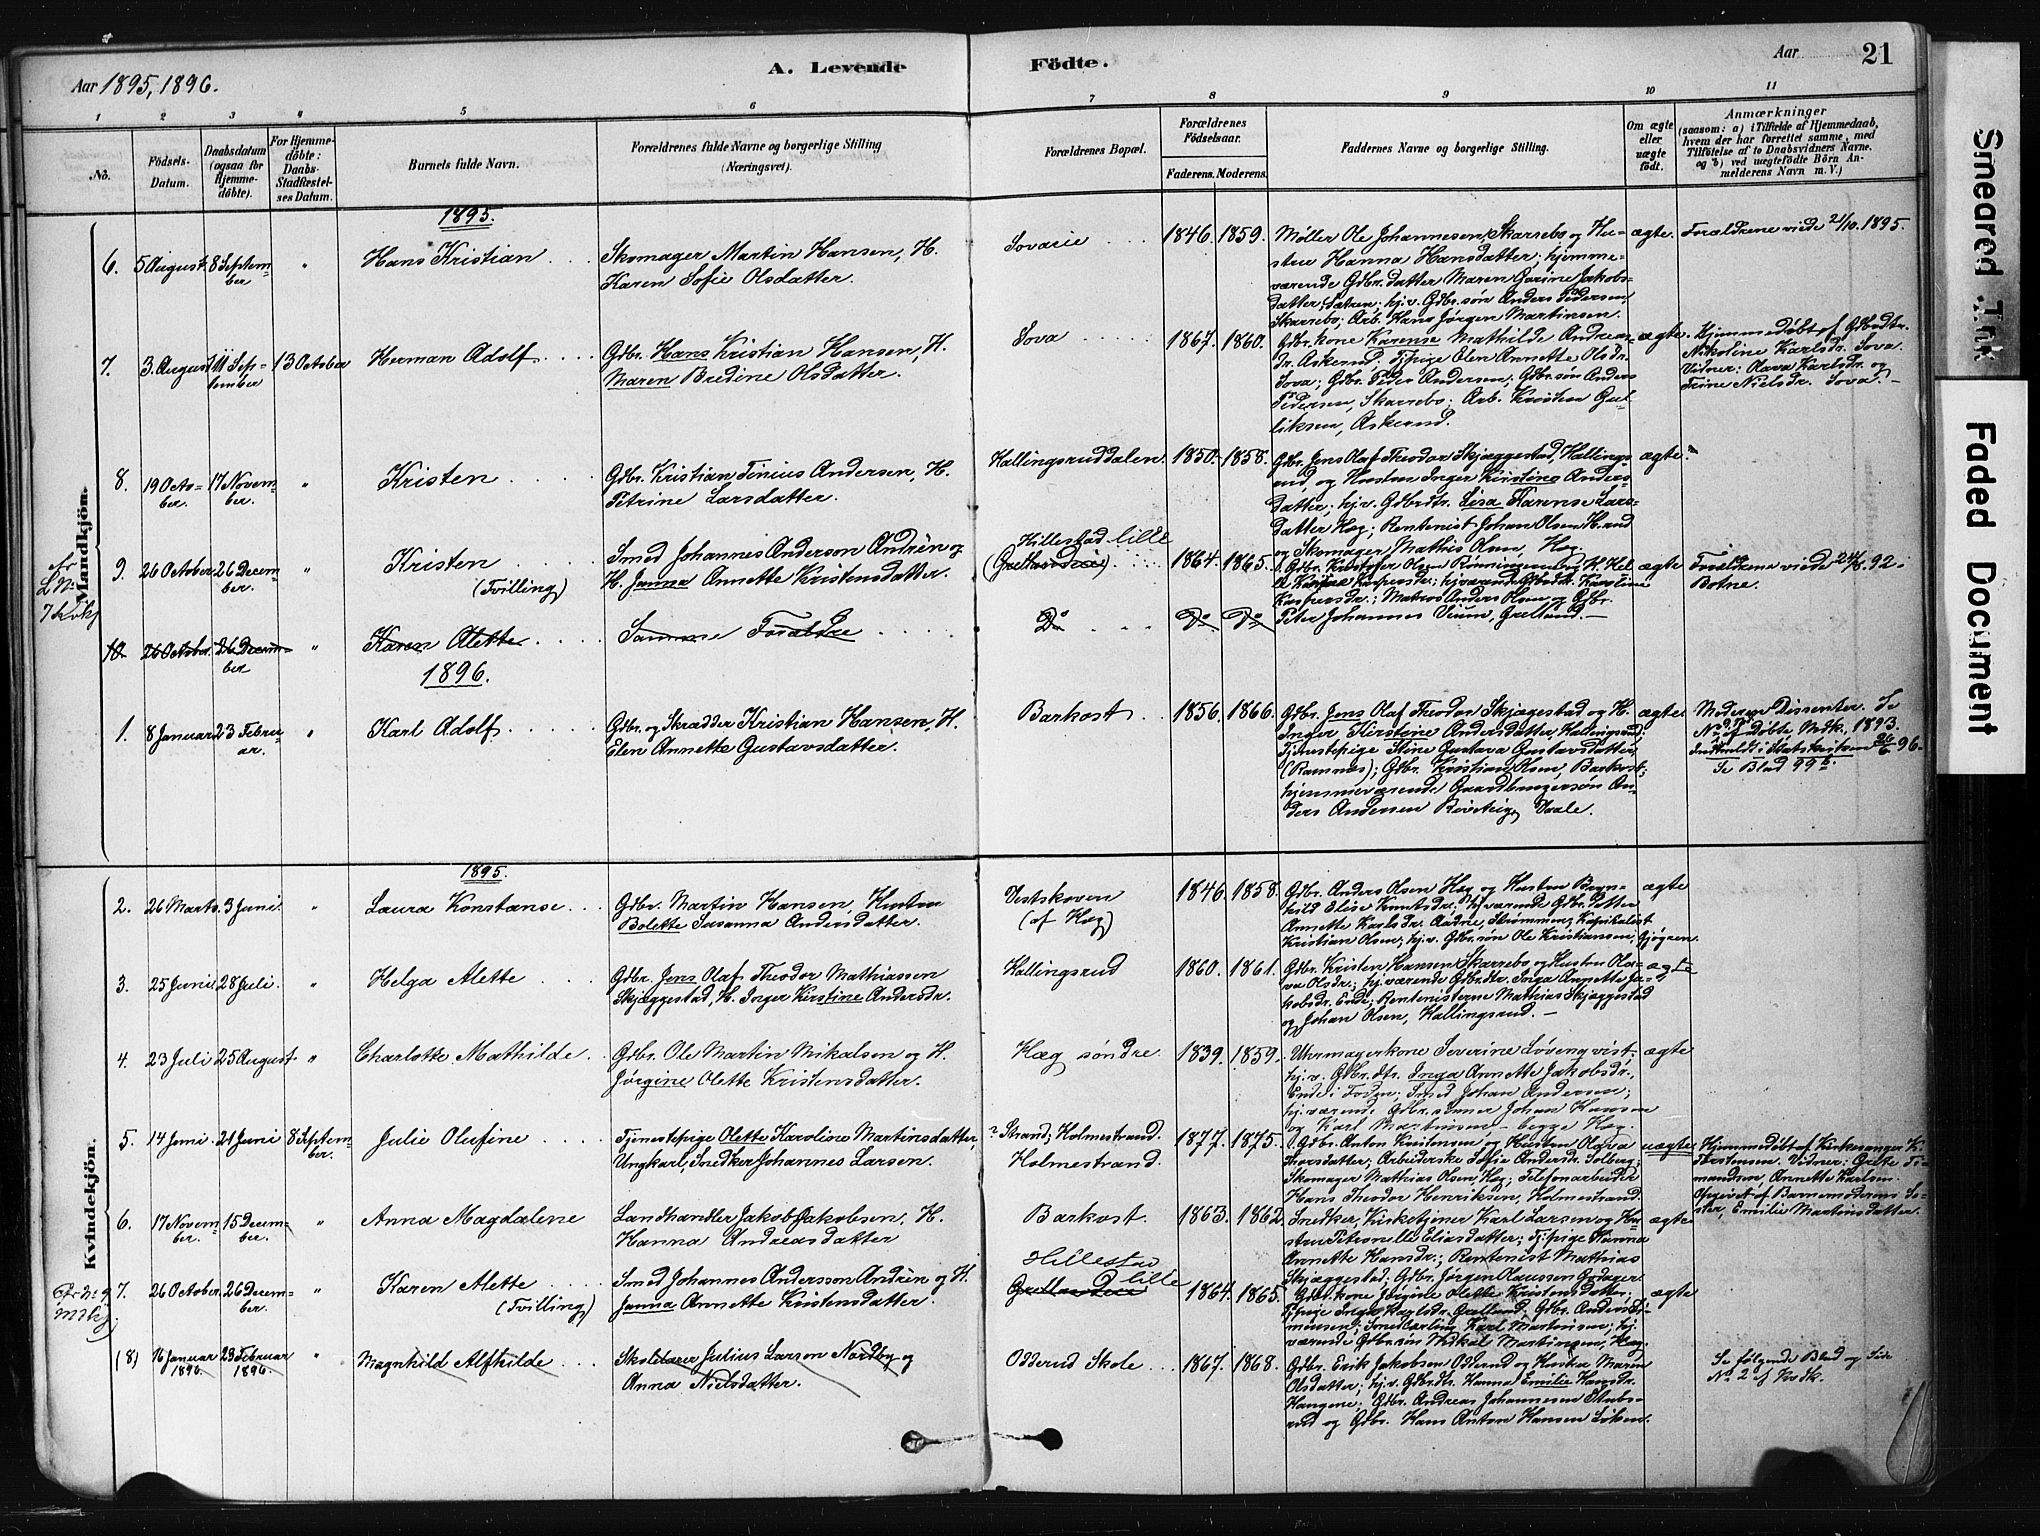 Aar 1895, 1896.
A. Levende Födte.
Aar 21
1 2 3 4 5 6 7 8 9 10 11
No.
Födsels-
Datum.
Daabsdatum
(ogsaa for
Hjemme-
döbte).
For Hjemme-
döbte:
Daabs-
Stadfæstel-
ses Datum.
Barnets fulde Navn.
Forældrenes fulde Navne og borgerlige Stilling
(Næringsvei).
Forældrenes Bopæl.
Forældrenes
Födselsaar.
Faderens. Moderens.
Faddernes Navne og borgerlige Stilling.
Om ægte
eller
uægte
födt.
Anmærkninger
(saasom: a) i Tilfælde af Hjemmedaab,
hvem der har forrettet samme, med
Tilföielse af to Daabsvidners Navne,
og b) ved uægtefödte Börn An-
melderens Navn m. V.)
Mandkjön.
1895.
6. 5 August 8 Septem-
ber " Hans Kristian
Skomager Martin Hansen, H.
Karen Sofie Olsdatter.
Sovarie 1846. 1859.
Møller Ole Johannesen, Skarrebo og Hu-
stru Hanna Hansdatter; hjemme-
værende Gdbr. datter Maren Gurine Jakobs-
datter, Sætren; hj.v. Gdbr. søn Anders Pedersen,
Skarrebo; Arb. Hans Jørgen Martinsen.
ægte. Forældrene viede 21/10. 1895.
7. 3 August 11 Sep-
tember 13 October Herman Adolf
Gdbr. Hans Kristian Hansen, H.
Maren Bredine Olsdatter.
Sova 1867. 1860.
Gdbr. kone Karense Mathilde Andreas-
dr. Askerud; Tj.pige Elen Annette Olsdr.
Sova; Gdbr. Peder Andersen, Gdbr. søn Anders
Pedersen, Skarrebo; Arb. Kristen Gul-
liksen, Askerud.
ægte. Hjemmedøbt af Gdbrdtr.
Nikoline Karlsdr. Sova.
Vidner: Olava Karlsdr. og
Trine Nielsdr. Sova.
8. 19 Octo-
ber. 17 Novem-
ber. " Kristen
Gdbr. Kristian Tinius Andersen, H.
Petrine Larsdatter.
Hallingsruddalen 1850. 1858.
Gdbr. Jens Olaf Theodor Skjæggestad, Hallings-
rud, og Hustru Inger Kirstine Anders-
datter, hj.v. Gdbrdtr. Lisa Karense Lars-
datter Høg; Rentenist Johan Olsen Strand
og Skomager Mathis Olsen, Høg.
ægte. "
9. 26 October 26 Decem-
ber. " Kristen
(Tvilling)
Smed Johannes Anderson Andrén og
H. Janna Annette Kristensdatter.
Hillestad lille
1864. 1865.
ægte Forældrene viede 24/6. 92 i
Botne.
Kasperdr.; Matros Anders Olsen og Gdbr.
Peter Johannes Vium, Grelland.
10. 26 October. 26 Decem-
ber " Karen Alette
Samme Forældre Do Do Do
1896.
1. 8 Januar 23 Febru-
ar. " Karl Adolf
Gdbr. og Skrædder Kristian Hansen, H.
Elen Annette Gustavsdatter.
Barkost. 1856. 1866.
Gdbr. Jens Olaf Theodor Skjægestad og H.
Inger Kirstine Andersdatter, Hallingsrud;
Tjenestepige Stine Gustava Gustavsdatter
(Ramnæs); Gdbr. Kristian Olsen, Barkost;
hjemmeværende Gaardbrugersøn An-
ders Andersen Revetrig, Vaale.
ægte. Moderen Dissenter. Se
døbte Mdk. 1893.
Se Blad 99b.
Kvindekjön.
1895.
2. 26 Marts. 3 Juni. " Laura Konstanse
Gdbr. Martin Hansen, Hustru
Bolette Susanna Andersdatter.
Vestskoven
(af Høg)
1846. 1858.
Gdbr. Anders Olsen Høg og Hustru Bryn-
hild Elise Knutsdr.; hj.værende Gdbr. datter
Annette Karlsdr. Aadne, Strømmen; Kaprikalist
Kristian Olsen; hj.v. Gdbr. søn Ole Kristiansen, Gjøgren.
ægte
3. 25 Juni. 28 Juli. " Helga Alette
Gdbr. Jens Olaf Theodor Mathiassen
Skjæggestad, H. Inger Kirstine Andersdr.
Hallingsrud 1860. 1861.
Gdbr. Kristen Hansen Skarrebo og Hustru Ola-
va Olsdr.; hj.værende Gdbrdtr. Inga Annette Ja-
kobsdr. Ende; Rentenisterne Mathias Skjæggestad
og Johan Olsen, Hallingsrud.
ægte
4. 23 Juli 25 August " Charlotte Mathilde
Gdbr. Ole Martin Mikalsen og H.
Jørgine Olette Kristensdatter.
Høg søndre. 1839. 1859.
Uhrmagerkone Severine Løvenqvist,
hj.v. Gdbr. dtr. Inga Annette Jakobsdr.,
Ende i Foden; Smed Johan Andersen;
hj.værende Gdbr. sønner Johan Hansen
og Karl Martinsen - begge Høg.
ægte
5. 14 Juni. 21 Juni 8 Septem-
ber. Julie Olufine
Tjenestepige Olette Karoline Martinsdatter,
Ungkarl, Snedker Johannes Larsen.
Strand; Holmestrand.
Holmestrand.
1877. 1875.
Gdbr. Anton Kristensen og Hustru Olava
Thorsdatter; Arbeiderske Sofie Andersdr. Solberg;
Skomager Mathias Olsen, Høg; Telefonarbeider
Hans Theodor Henriksen, Holmestrand.
uægte Hjemmedøbt af Kirkesanger K.
Torstensen. Vidner: Grete Ti-
mandsen, Annette Karlsen.
Opgivet af Barnemoderens Sø-
ster, Emilie Martinsdatter.
6. 17 Novem-
ber. 15 Decem-
ber. " Anna Magdalene
Landhandler Jakob Jakobsen, H.
Hanna Andreasdatter
Barkost. 1863. 1862.
Snedker, Kirketjener Karl Larsen og Hu-
stru Petronelle Eliasdatter; Tj.pige Hanna
Annette Hansdr.; Rentenist Mathias
Skjæggestad; Gdbr. Jørgen Olaussen
ægte
7. 26 October. 26 Decem-
ber. " Karen Alette
(Tvilling)
Smed Johannes Andersson Andrén og H.
Janna Annette Kristensdatter.
Hillestad
lille
1864. 1865.
Gdbr. kone Jørgine Olette Kristensdatter;
Tj.pige Inga Karlsdr. Grelland; Gdbr. Anders Si-
monsen; Smedlærling Karl Martinsen; hj.
værende Gdbr. søn Mikal Martinsen, Høg.
ægte
(8) 16 Januar
1896. 23 Februar
1896. " Magnhild Alfhilde
Skolelærer Julius Larson Nordby og
Anna Nielsdatter.
Odderud Skole 1867. 1868.
Gdbr. Erik Jakobsen Odderud og Hustru Maren
Olsdatter; hj.v. Gdbrdtr. Hanna Emilie Hansdr.
Haugene; Gdbr. Andreas Johannesen Stubs-
rud og Gdbr. Hans Anton Hansen Løken.
Se følgende Blad og Side
No 2 af Kvdk.
Smeared Ink
Faded Document